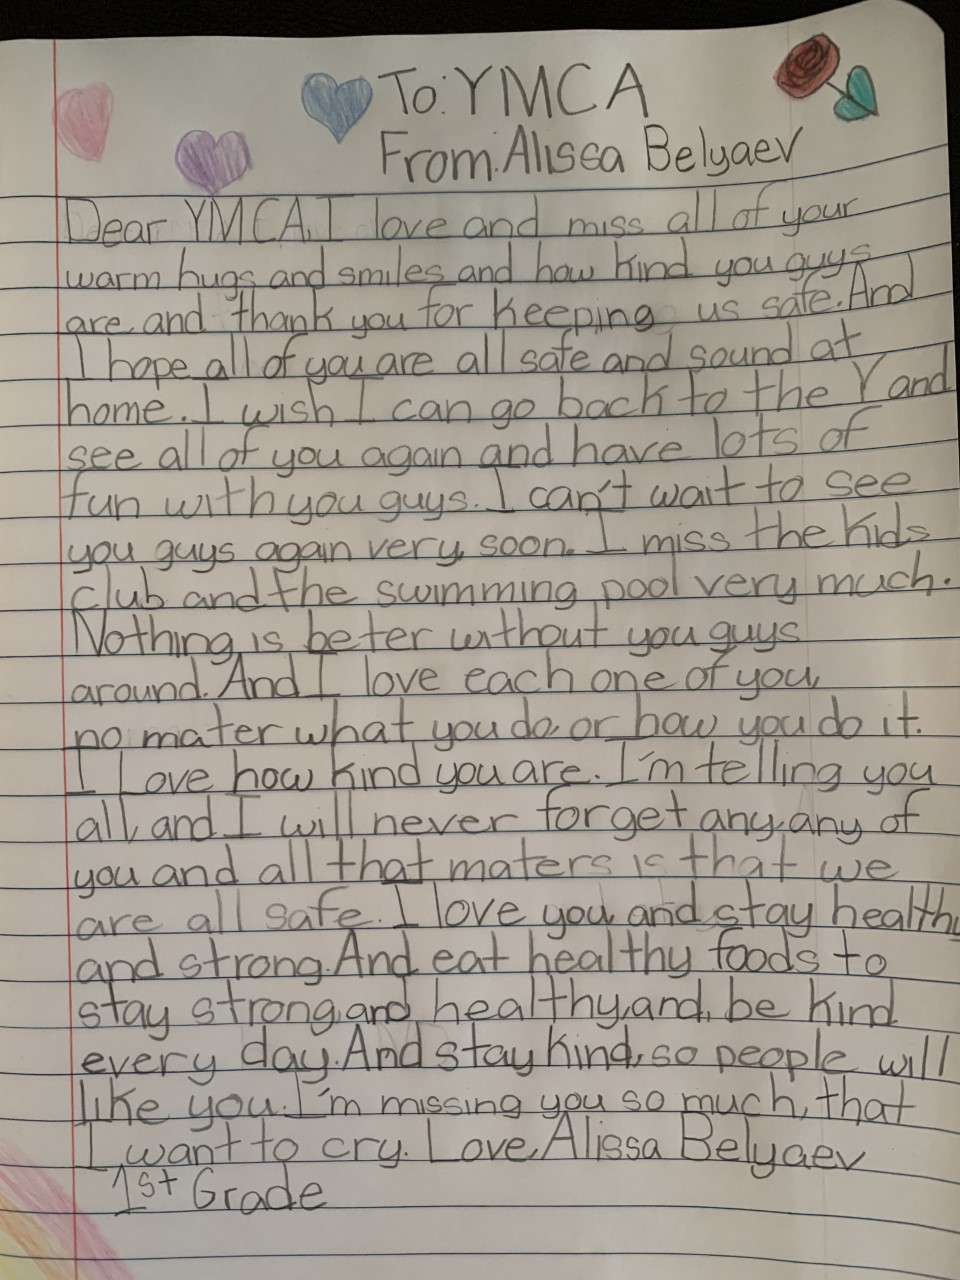 To: YMCA
From: Alissa Belyaev
Dear YMCA, I love and miss all of your
warm hugs and smiles and how kind you guys
are, and thank you for keeping us safe. And
I hope all of you are all safe and sound at
home. I wish I can go back to the Y and
see all of you again and have lots of
fun with you guys. I can't wait to see
you guys again very soon. I miss the kids
club and the swimming pool very much.
Nothing is beter without you guys
around. And I love each one of you,
no mater what you do, or how you do it.
I Love how kind you are. I'm telling you
all, and I will never forget any, any of
you and all that maters is that we
are all safe. I love you, and stay healthy
and strong. And eat healthy foods to
stay strong, and healthy, and, be kind
every day. And stay kind, so people will
like you. I'm missing you so much, that
I want to cry. Love, Alissa Belyaev
1st Grade